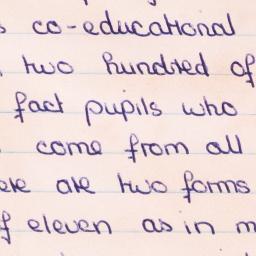 s co-educational
two hundred of
fact pupils who
come from all
ere are two forms
f eleven as in m